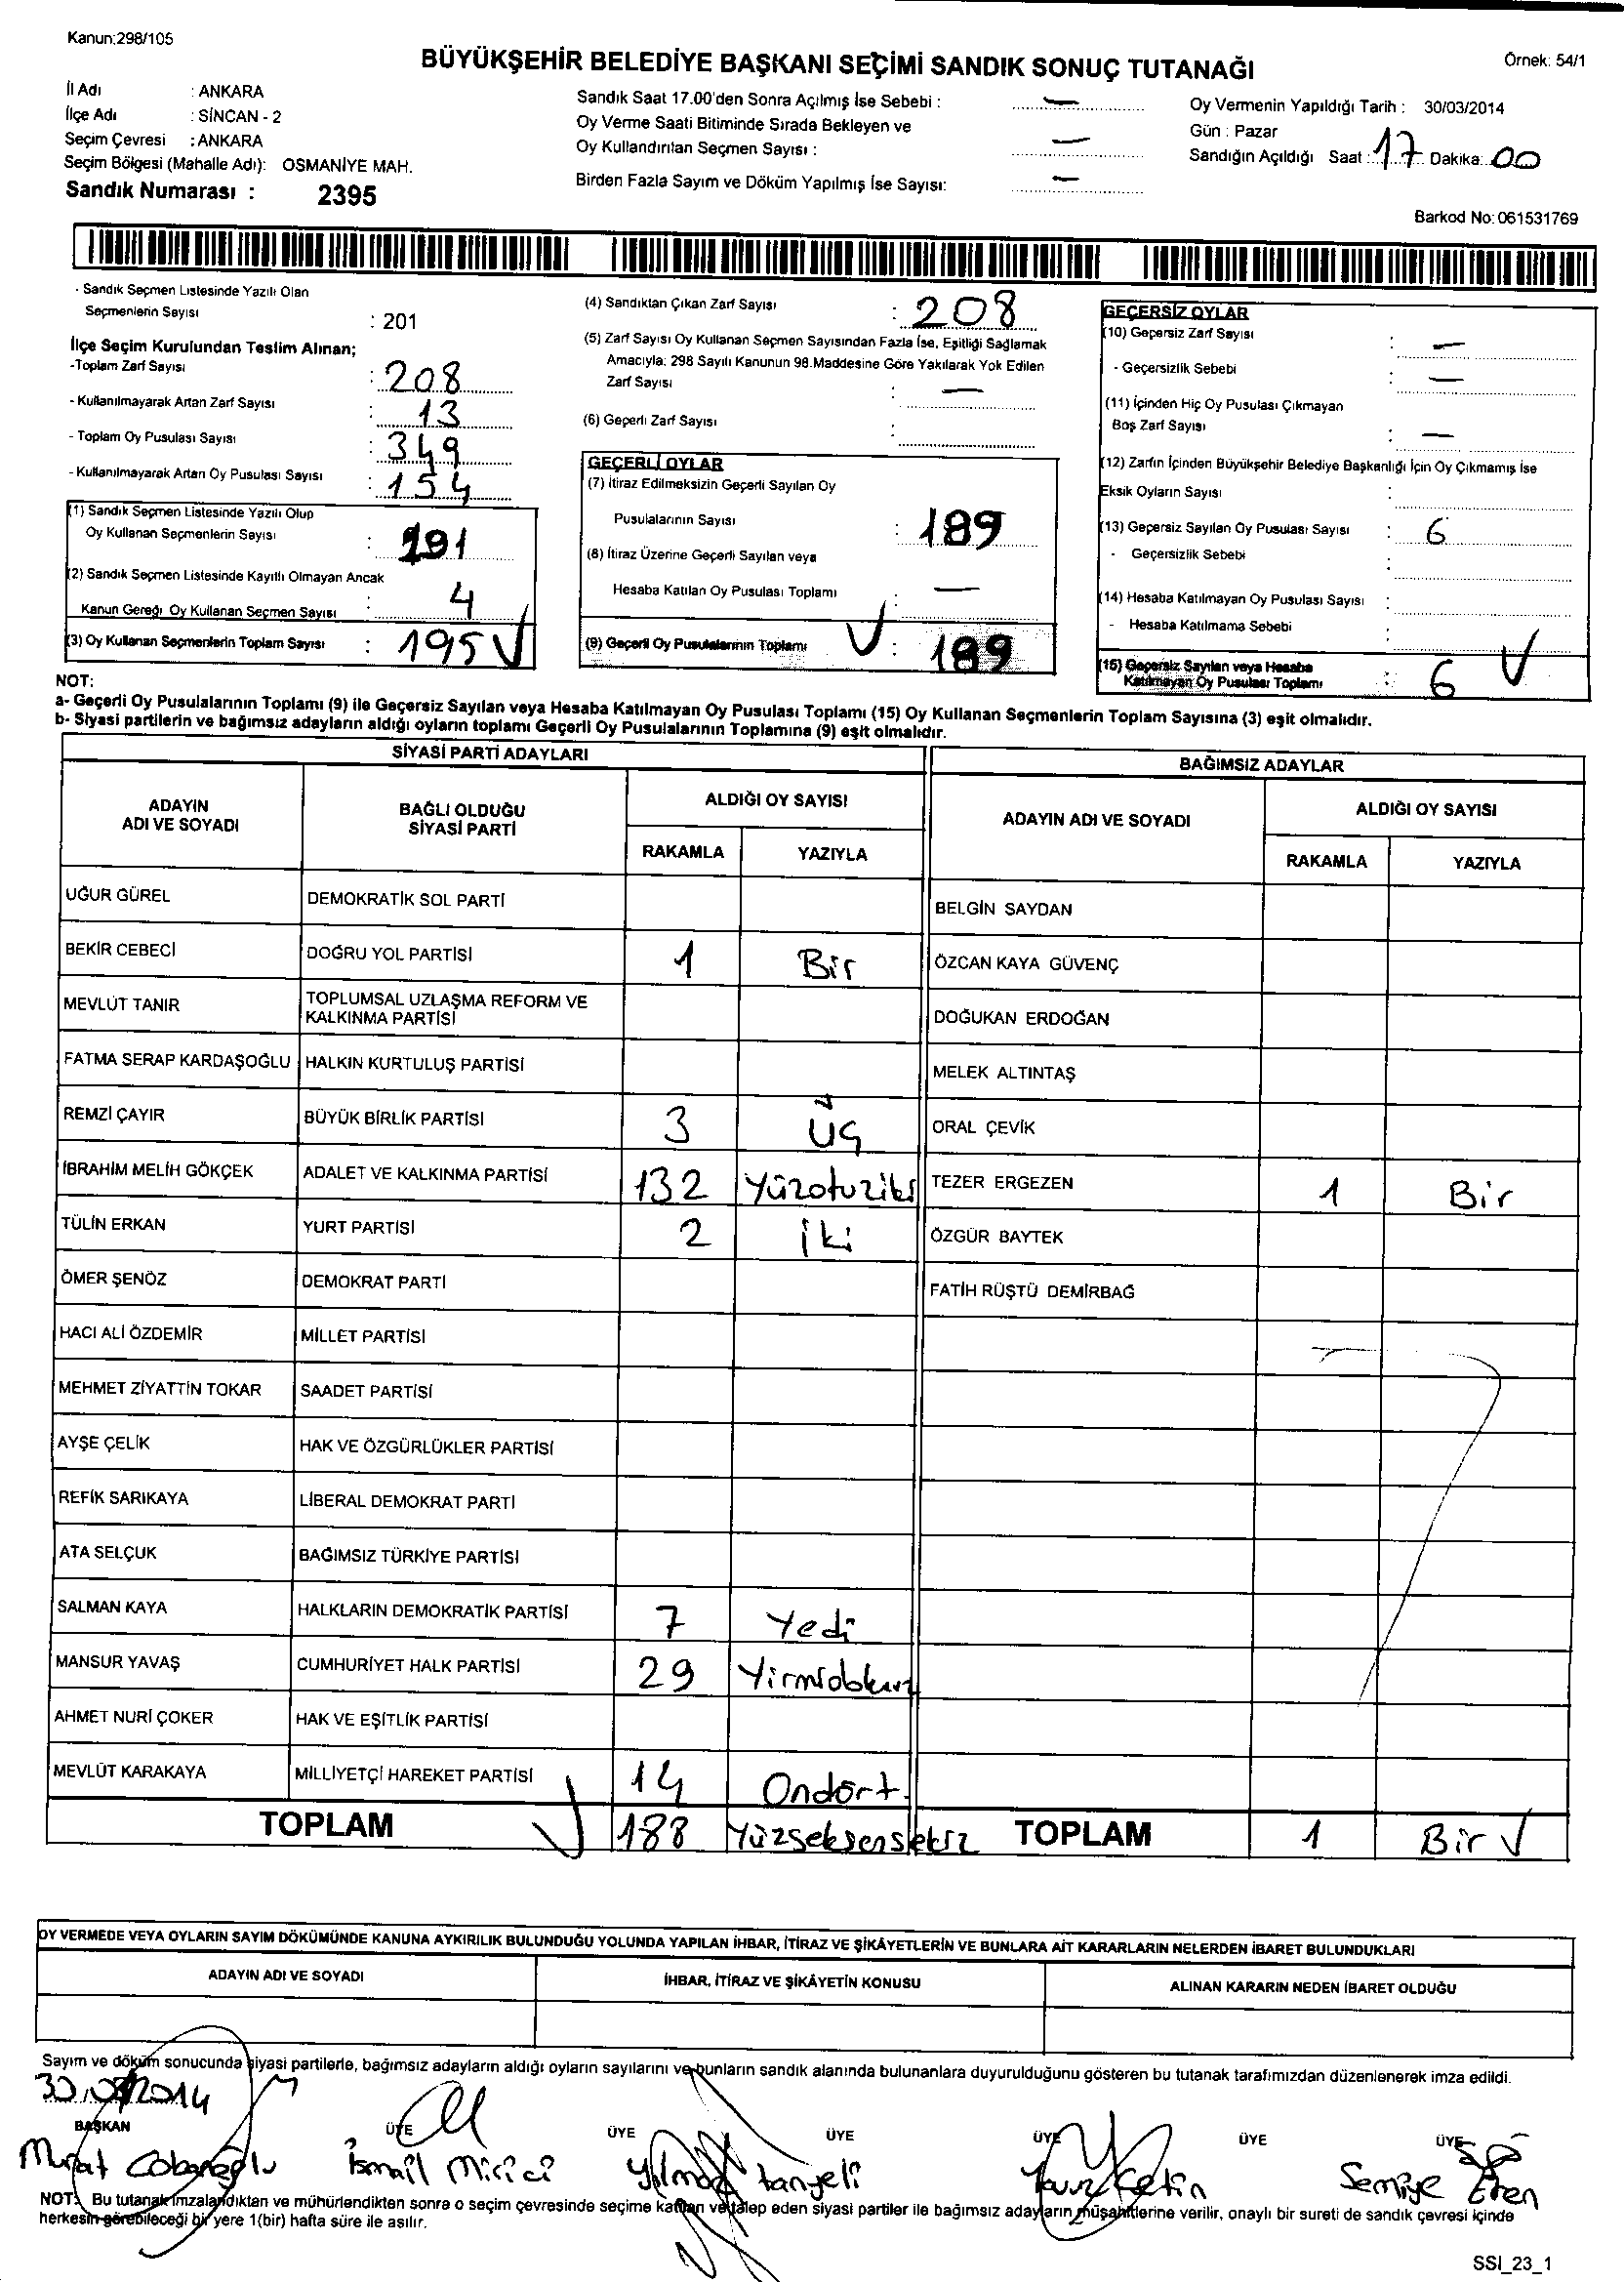 Kanun:298/105
BÜYÜKŞEHİR BELEDİYE BAŞKANI SEÇİMİ SANDIK SONUÇ TUTANAĞI
Örnek: 54/1
İl Adı : ANKARA
İlçe Adı : SİNCAN - 2
Seçim Çevresi : ANKARA
Seçim Bölgesi (Mahalle Adı): OSMANİYE MAH.
Sandık Numarası : 2395
Sandık Saat 17.00'den Sonra Açılmış İse Sebebi : —
Oy Verme Saati Bitiminde Sırada Bekleyen ve
Oy Kullandırılan Seçmen Sayısı : —
Birden Fazla Sayım ve Döküm Yapılmış İse Sayısı: —
Oy Vermenin Yapıldığı Tarih : 30/03/2014
Gün : Pazar
Sandığın Açıldığı Saat : 17 Dakika: 00
Barkod No: 061531769
- Sandık Seçmen Listesinde Yazılı Olan
Seçmenlerin Sayısı : 201
İlçe Seçim Kurulundan Teslim Alınan;
-Toplam Zarf Sayısı : 208
- Kullanılmayarak Artan Zarf Sayısı : 13
- Toplam Oy Pusulası Sayısı : 349
- Kullanılmayarak Artan Oy Pusulası Sayısı : 154
(1) Sandık Seçmen Listesinde Yazılı Olup
Oy Kullanan Seçmenlerin Sayısı : 191
(2) Sandık Seçmen Listesinde Kayıtlı Olmayan Ancak
Kanun Gereği Oy Kullanan Seçmen Sayısı : 4
(3) Oy Kullanan Seçmenlerin Toplam Sayısı : 195
(4) Sandıktan Çıkan Zarf Sayısı : 208
(5) Zarf Sayısı Oy Kullanan Seçmen Sayısından Fazla İse, Eşitliği Sağlamak
Amacıyla: 298 Sayılı Kanunun 98.Maddesine Göre Yakılarak Yok Edilen
Zarf Sayısı : —
(6) Geçerli Zarf Sayısı :
GEÇERLİ OYLAR
(7) İtiraz Edilmeksizin Geçerli Sayılan Oy
Pusulalarının Sayısı : 189
(8) İtiraz Üzerine Geçerli Sayılan veya
Hesaba Katılan Oy Pusulası Toplamı : —
(9) Geçerli Oy Pusulalarının Toplamı : 189
GEÇERSİZ OYLAR
(10) Geçersiz Zarf Sayısı : —
- Geçersizlik Sebebi : —
(11) İçinden Hiç Oy Pusulası Çıkmayan
Boş Zarf Sayısı : —
(12) Zarfın İçinden Büyükşehir Belediye Başkanlığı İçin Oy Çıkmamış İse
Eksik Oyların Sayısı :
(13) Geçersiz Sayılan Oy Pusulası Sayısı : 6
- Geçersizlik Sebebi :
(14) Hesaba Katılmayan Oy Pusulası Sayısı :
- Hesaba Katılmama Sebebi :
(15) Geçersiz Sayılan veya Hesaba
Katılmayan Oy Pusulası Toplamı : 6
NOT:
a- Geçerli Oy Pusulalarının Toplamı (9) ile Geçersiz Sayılan veya Hesaba Katılmayan Oy Pusulası Toplamı (15) Oy Kullanan Seçmenlerin Toplam Sayısına (3) eşit olmalıdır.
b- Siyasi partilerin ve bağımsız adayların aldığı oyların toplamı Geçerli Oy Pusulalarının Toplamına (9) eşit olmalıdır.
SİYASİ PARTİ ADAYLARI
ADAYIN ADI VE SOYADI
BAĞLI OLDUĞU SİYASİ PARTİ
ALDIĞI OY SAYISI
RAKAMLA YAZIYLA
UĞUR GÜREL DEMOKRATİK SOL PARTİ
BEKİR CEBECİ DOĞRU YOL PARTİSİ 1 Bir
MEVLÜT TANIR TOPLUMSAL UZLAŞMA REFORM VE KALKINMA PARTİSİ
FATMA SERAP KARDAŞOĞLU HALKIN KURTULUŞ PARTİSİ
REMZİ ÇAYIR BÜYÜK BİRLİK PARTİSİ 3 Üç
İBRAHİM MELİH GÖKÇEK ADALET VE KALKINMA PARTİSİ 132 Yüzotuziki
TÜLİN ERKAN YURT PARTİSİ 2 İki
ÖMER ŞENÖZ DEMOKRAT PARTİ
HACI ALİ ÖZDEMİR MİLLET PARTİSİ
MEHMET ZİYATTİN TOKAR SAADET PARTİSİ
AYŞE ÇELİK HAK VE ÖZGÜRLÜKLER PARTİSİ
REFİK SARIKAYA LİBERAL DEMOKRAT PARTİ
ATA SELÇUK BAĞIMSIZ TÜRKİYE PARTİSİ
SALMAN KAYA HALKLARIN DEMOKRATİK PARTİSİ 7 Yedi
MANSUR YAVAŞ CUMHURİYET HALK PARTİSİ 29 Yirmidokuz
AHMET NURİ ÇOKER HAK VE EŞİTLİK PARTİSİ
MEVLÜT KARAKAYA MİLLİYETÇİ HAREKET PARTİSİ 14 Ondört.
TOPLAM 188 Yüzseksensekiz
BAĞIMSIZ ADAYLAR
ADAYIN ADI VE SOYADI
ALDIĞI OY SAYISI
RAKAMLA YAZIYLA
BELGİN SAYDAN
ÖZCAN KAYA GÜVENÇ
DOĞUKAN ERDOĞAN
MELEK ALTINTAŞ
ORAL ÇEVİK
TEZER ERGEZEN 1 Bir
ÖZGÜR BAYTEK
FATİH RÜŞTÜ DEMİRBAĞ
TOPLAM 1 Bir
OY VERMEDE VEYA OYLARIN SAYIM DÖKÜMÜNDE KANUNA AYKIRILIK BULUNDUĞU YOLUNDA YAPILAN İHBAR, İTİRAZ VE ŞİKÂYETLERİN VE BUNLARA AİT KARARLARIN NELERDEN İBARET BULUNDUKLARI
ADAYIN ADI VE SOYADI İHBAR, İTİRAZ VE ŞİKÂYETİN KONUSU ALINAN KARARIN NEDEN İBARET OLDUĞU
Sayım ve döküm sonucunda siyasi partilerle, bağımsız adayların aldığı oyların sayılarını ve bunların sandık alanında bulunanlara duyurulduğunu gösteren bu tutanak tarafımızdan düzenlenerek imza edildi.
30.03.2014
BAŞKAN ÜYE ÜYE ÜYE ÜYE ÜYE ÜYE
Murat Çobanoğlu İsmail Mirici Yılmaz Tanyeli Yavuz Çetin Semiye Eren
NOT: Bu tutanak imzalandıktan ve mühürlendikten sonra o seçim çevresinde seçime katılan ve talep eden siyasi partiler ile bağımsız adayların müşahitlerine verilir, onaylı bir sureti de sandık çevresi içinde
herkesin görebileceği bir yere 1(bir) hafta süre ile asılır.
SSI_23_1